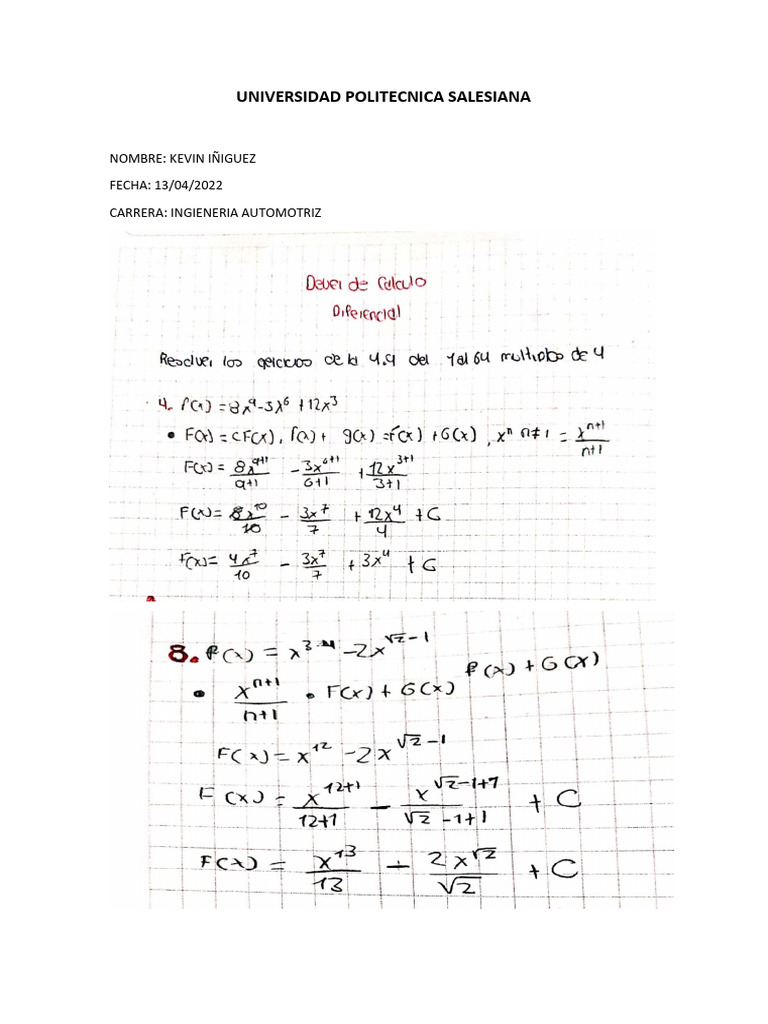 UNIVERSIDAD POLITECNICA SALESIANA
NOMBRE: KEVIN IÑIGUEZ
FECHA: 13/04/2022
CARRERA: INGIENERIA AUTOMOTRIZ
Deber de Calculo
Diferencial
Resolver los ejercicios de la 4.9 del 1 al 64 multiplos de 4
4. f(x) = 8x^9 - 3x^6 + 12x^3
• F(x) = cF(x), f(x) + g(x) = F(x) + G(x), x^n n≠1 = x^(n+1)/(n+1)
F(x) = 8x^(9+1)/(9+1) - 3x^(6+1)/(6+1) + 12x^(3+1)/(3+1)
F(x) = 8x^10/10 - 3x^7/7 + 12x^4/4 + C
F(x) = 4x^7/10 - 3x^7/7 + 3x^4 + C
8. f(x) = x^3.4 - 2x^(√2-1)
• x^(n+1)/(n+1) • F(x) + G(x) f(x) + G(x)
F(x) = x^12 - 2x^(√2-1)
F(x) = x^(12+1)/(12+1) - x^(√2-1+1)/(√2-1+1) + C
F(x) = x^13/13 + 2x^√2/√2 + C